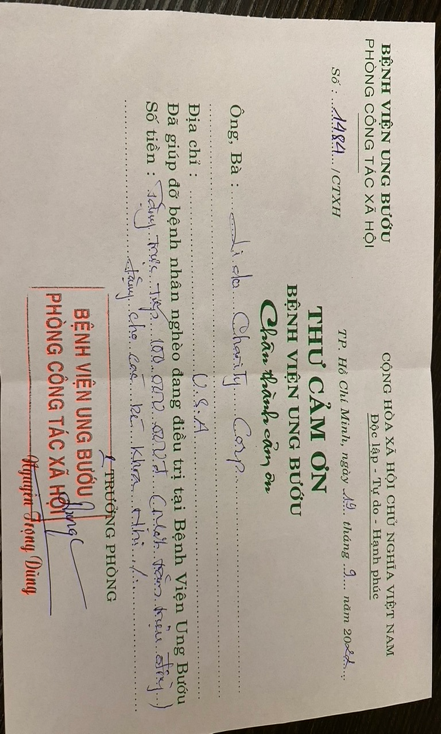 BỆNH VIỆN UNG BƯỚU
PHÒNG CÔNG TÁC XÃ HỘI
Số : 1484 /CTXH
CỘNG HÒA XÃ HỘI CHỦ NGHĨA VIỆT NAM
Độc lập - Tự do - Hạnh phúc
TP. Hồ Chí Minh, ngày 19 tháng 9 năm 2022
THƯ CẢM ƠN
BỆNH VIỆN UNG BƯỚU
Chân thành cảm ơn
Ông, Bà : Lido Charity Corp
Địa chỉ : U.S.A
Đã giúp đỡ bệnh nhân nghèo đang điều trị tại Bệnh Viện Ung Bướu
Số tiền : Tặng trực tiếp 100.000.000đ (Một trăm triệu đồng)
tặng cho các bé khoa nhi
TRƯỞNG PHÒNG
BỆNH VIỆN UNG BƯỚU
PHÒNG CÔNG TÁC XÃ HỘI
Nguyễn Trọng Dũng